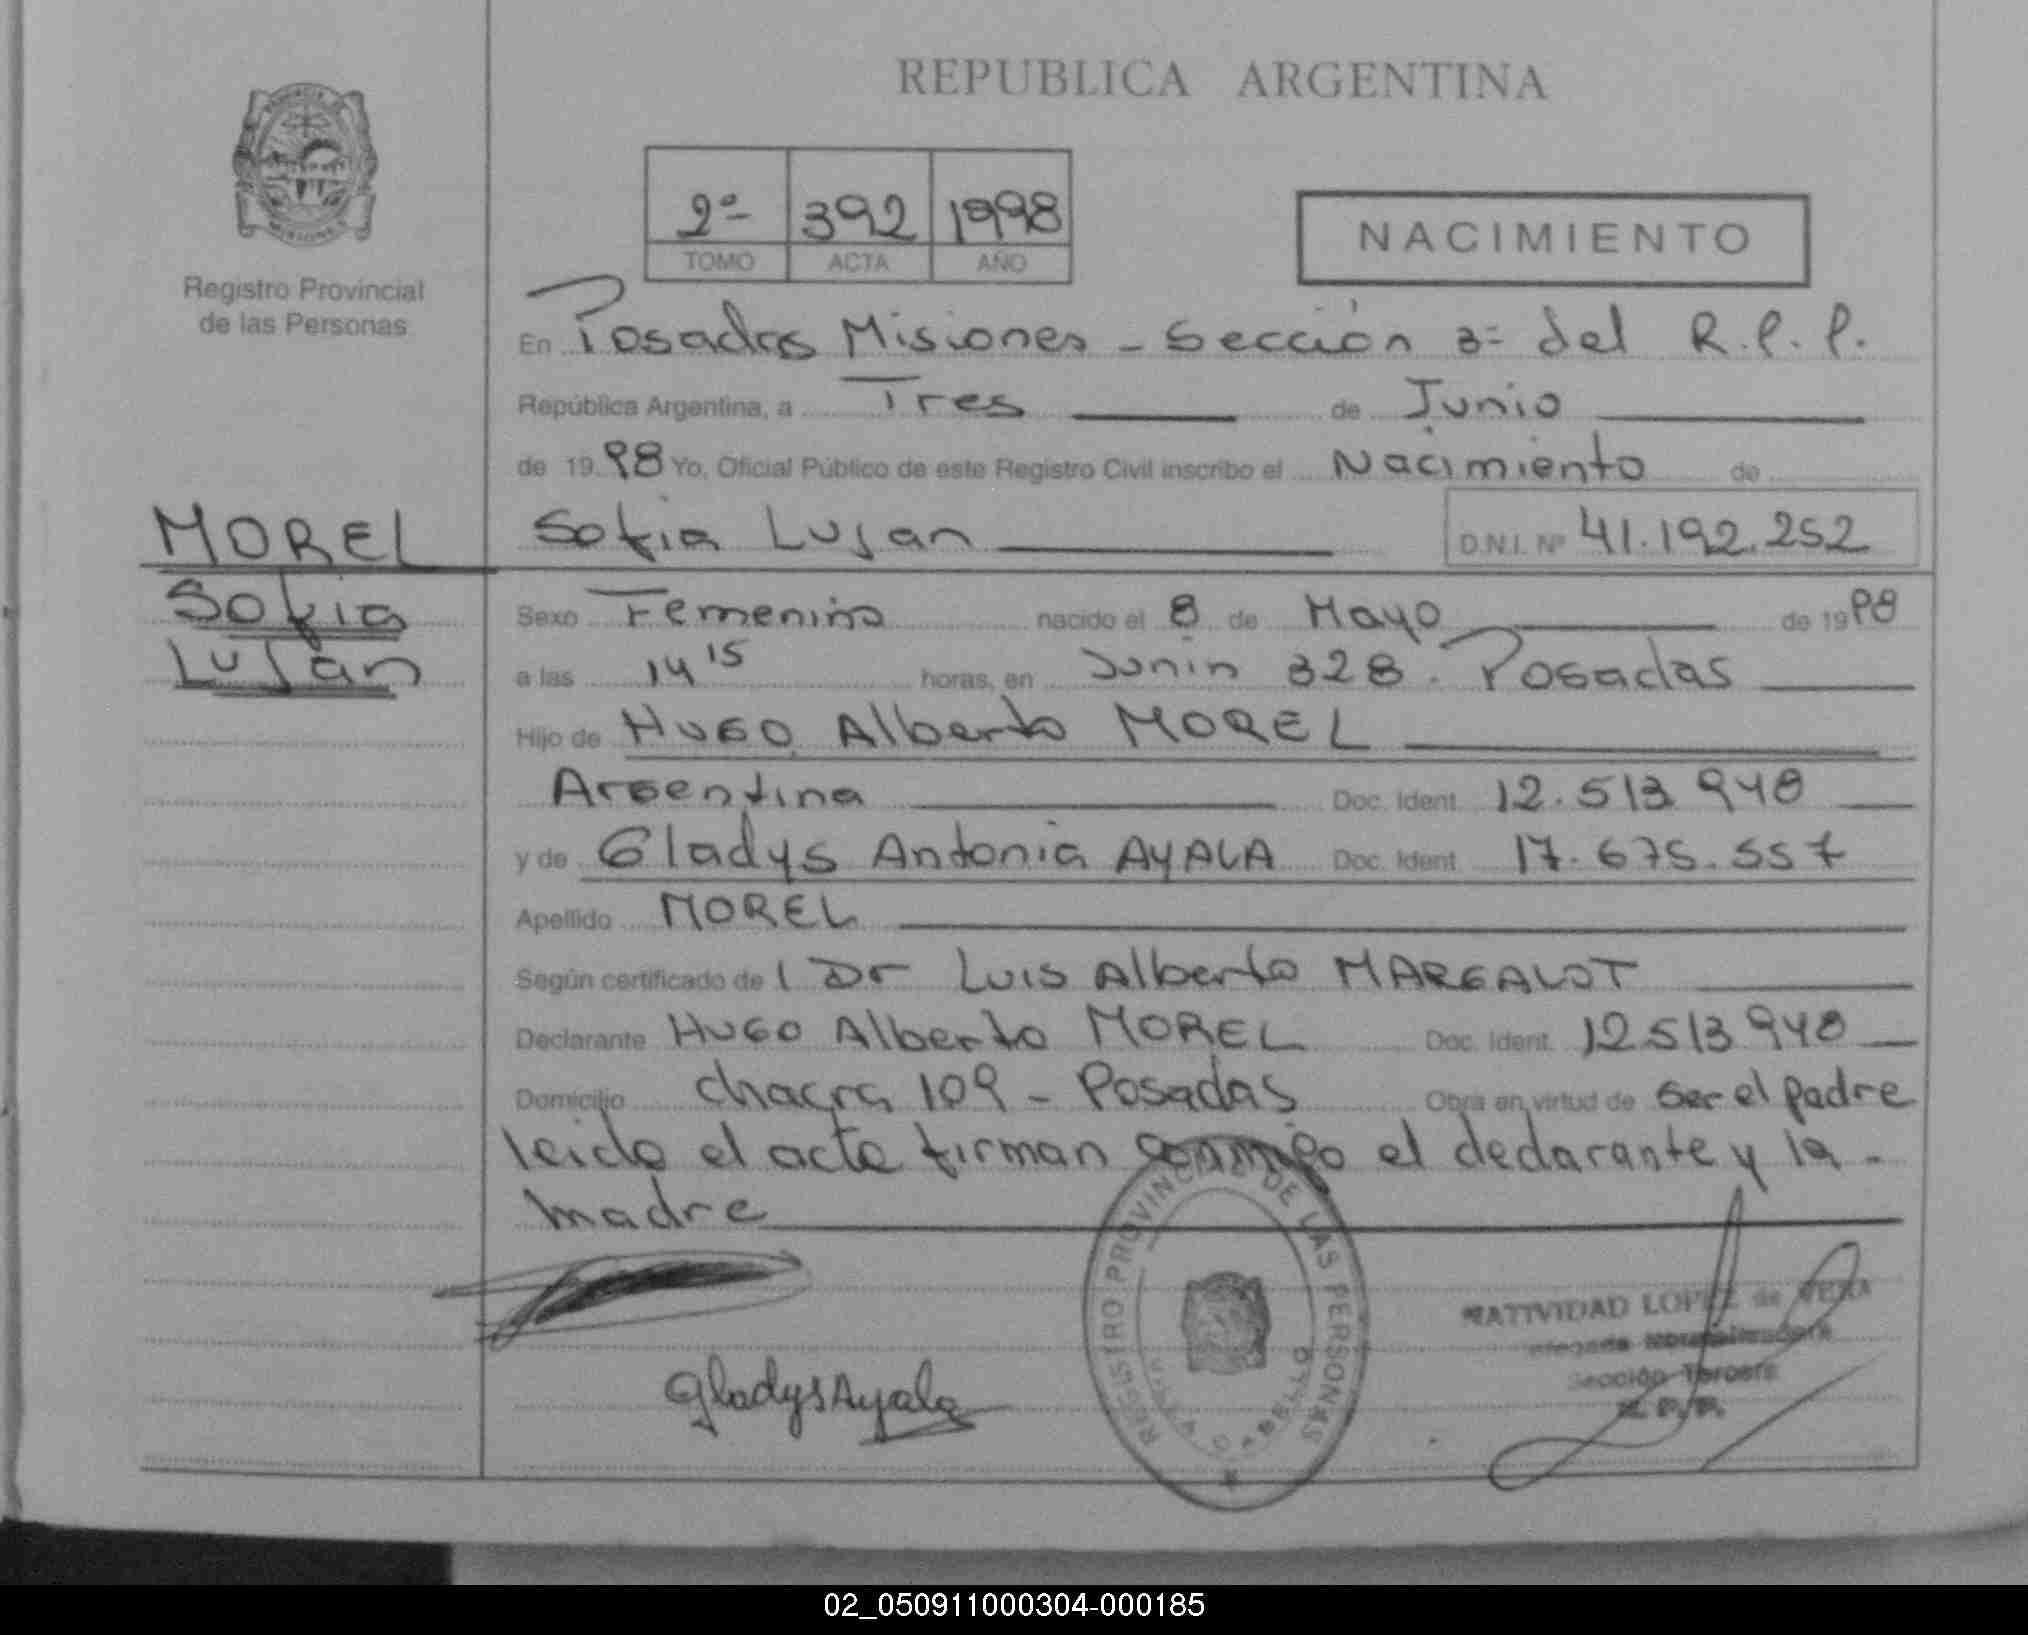 REPUBLICA ARGENTINA
PROVINCIA DE
MISIONES
Registro Provincial
de las Personas
2º- 392 1998
TOMO ACTA AÑO
NACIMIENTO
En Posadas Misiones - Sección 3ª del R.P.P.
República Argentina, a Tres de Junio
de 1998 Yo, Oficial Público de este Registro Civil inscribo el Nacimiento de
MOREL Sofia Lujan D.N.I. Nº 41.192.252
Sofia
Luján
Sexo Femenino nacido el 8 de Mayo de 1998
a las 14 15 horas, en Junin 328. Posadas
Hijo de Hugo Alberto MOREL
Argentina Doc. Ident. 12.513 948
y de Gladys Antonia AYALA Doc. Ident. 17.675.557
Apellido MOREL
Según certificado de l Dr Luis Alberto MARGALOT
Declarante Hugo Alberto MOREL Doc. Ident. 12513948
Domicilio chacra 109 - Posadas Obra en virtud de ser el padre
leida el acta firman conmigo el declarante y la -
madre
REGISTRO PROVINCIAL DE LAS PERSONAS
VILLA CABELLO
Gladys Ayala
NATIVIDAD LOPEZ de VERA
Sección Tercera
R.P.P.
02_050911000304-000185